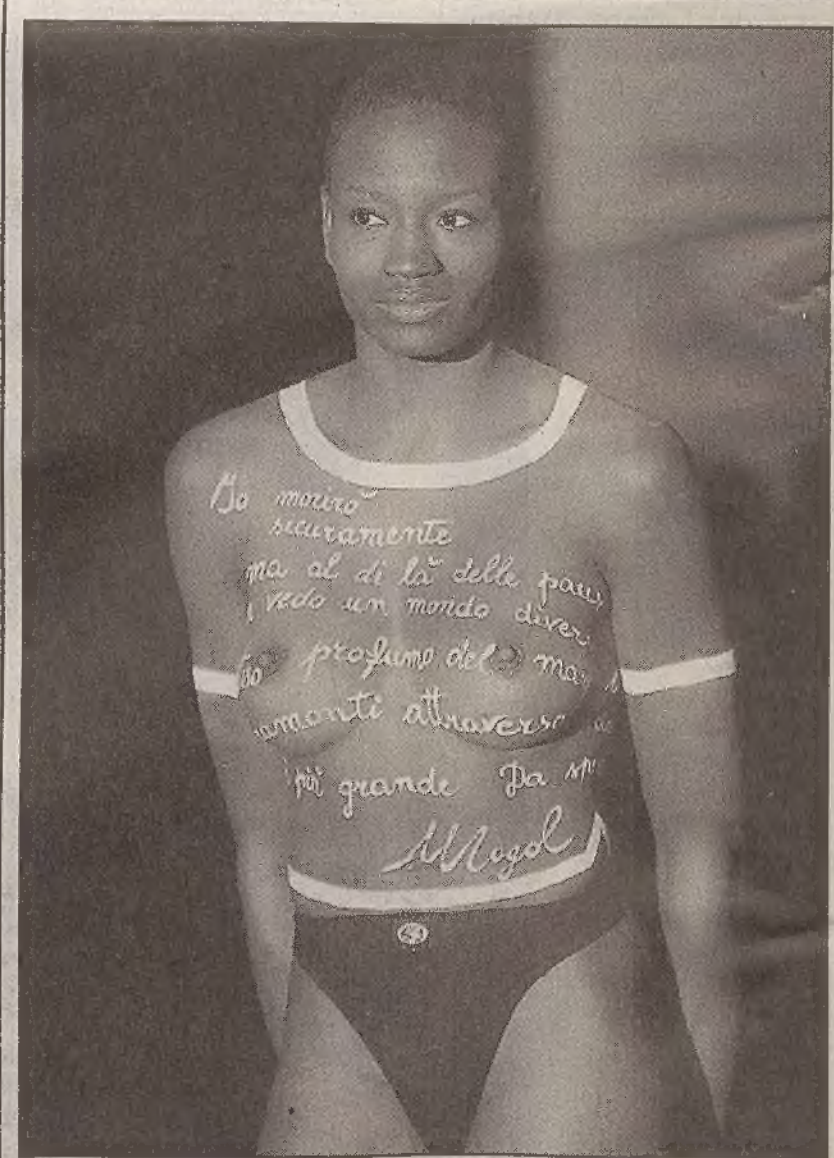 Io morirò
sicuramente
ma al di là delle pau
vedo un mondo diver
profumo del ma
amanti attraverso
più grande Da sp
Mogol